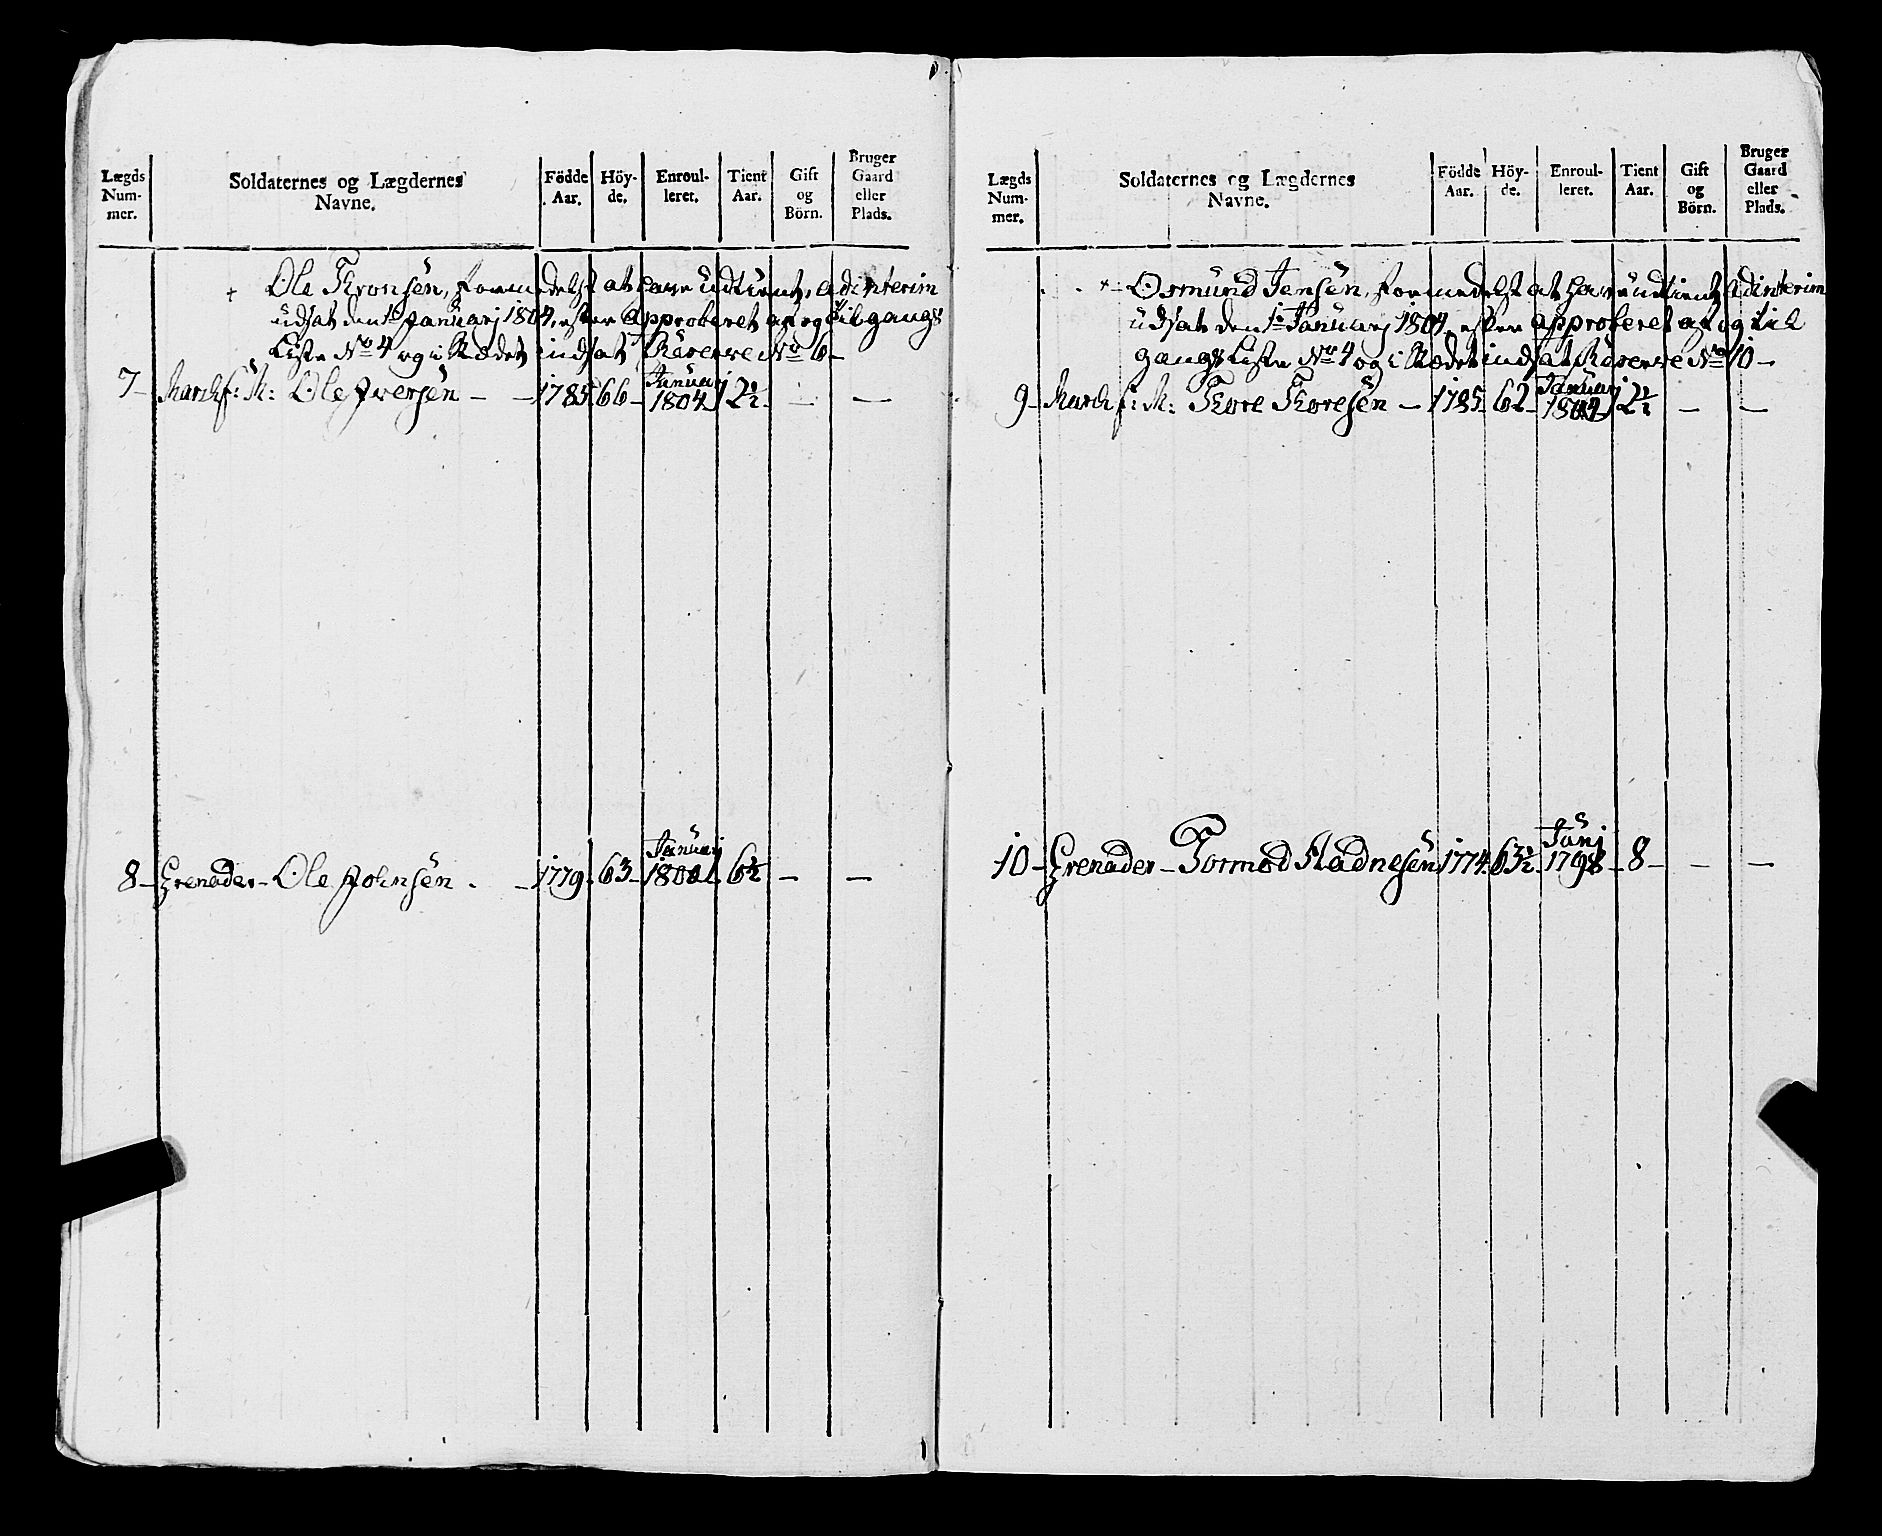 Lægds Num- mer.
Soldaternes og Lægdernes Navne.
Födde Aar.
Höy- de.
Enroul- leret.
Tient Aar.
Gift og Börn.
Bruger Gaard eller Plads.
+ Ole Thronsen, formedelst at have udtient, ad interim
udsat den 1te Januarj 1804, efter approberet af og til gangs
Liste No 4 og i Stædet indsat Reserve No 6 -
7 - March s: M: Ole Iversen - - 1785 66 - Januarj 1804 2½ - - -
8 - Grenader - Ole Johnsen - - 1779. 63 - Januarj 1800 6½ - -
Lægds Num- mer.
Soldaternes og Lægdernes Navne.
Födde Aar.
Höy- de.
Enroul- leret.
Tient Aar.
Gift og Börn.
Bruger Gaard eller Plads.
+ Osmund Jensen, formedelst at have udtient, ad interim
udsat den 1te Januarj 1804, efter approberet af og til
gangs Liste No 4 og i Stædet indsat Reserve No 10 -
9 - March s: M: Thore Thoresen - 1785 62 - Januarj 1804 2½ - -
10 - Grenader - Tormod Stadnesen 1774. 63½ - Janj 1798 - 8 - - -